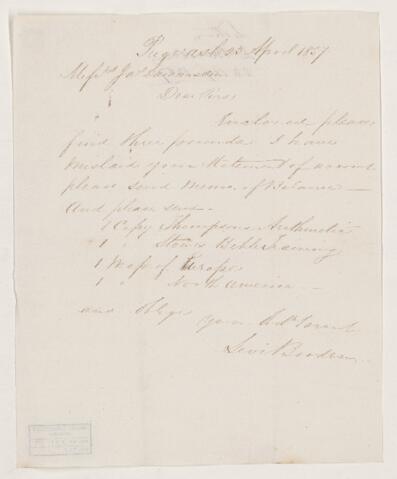 23 April 1857
Dear Sirs
Enclosed please
find three pounds I have
mislaid your Statement of account
please send Memo. of Balance —
And please send —
1 Copy Thompsons Arithmetic
1 " Stows Bible Training
1 Map of Europe
1 " North America —
and oblige
Your Obdt Servt
Levi